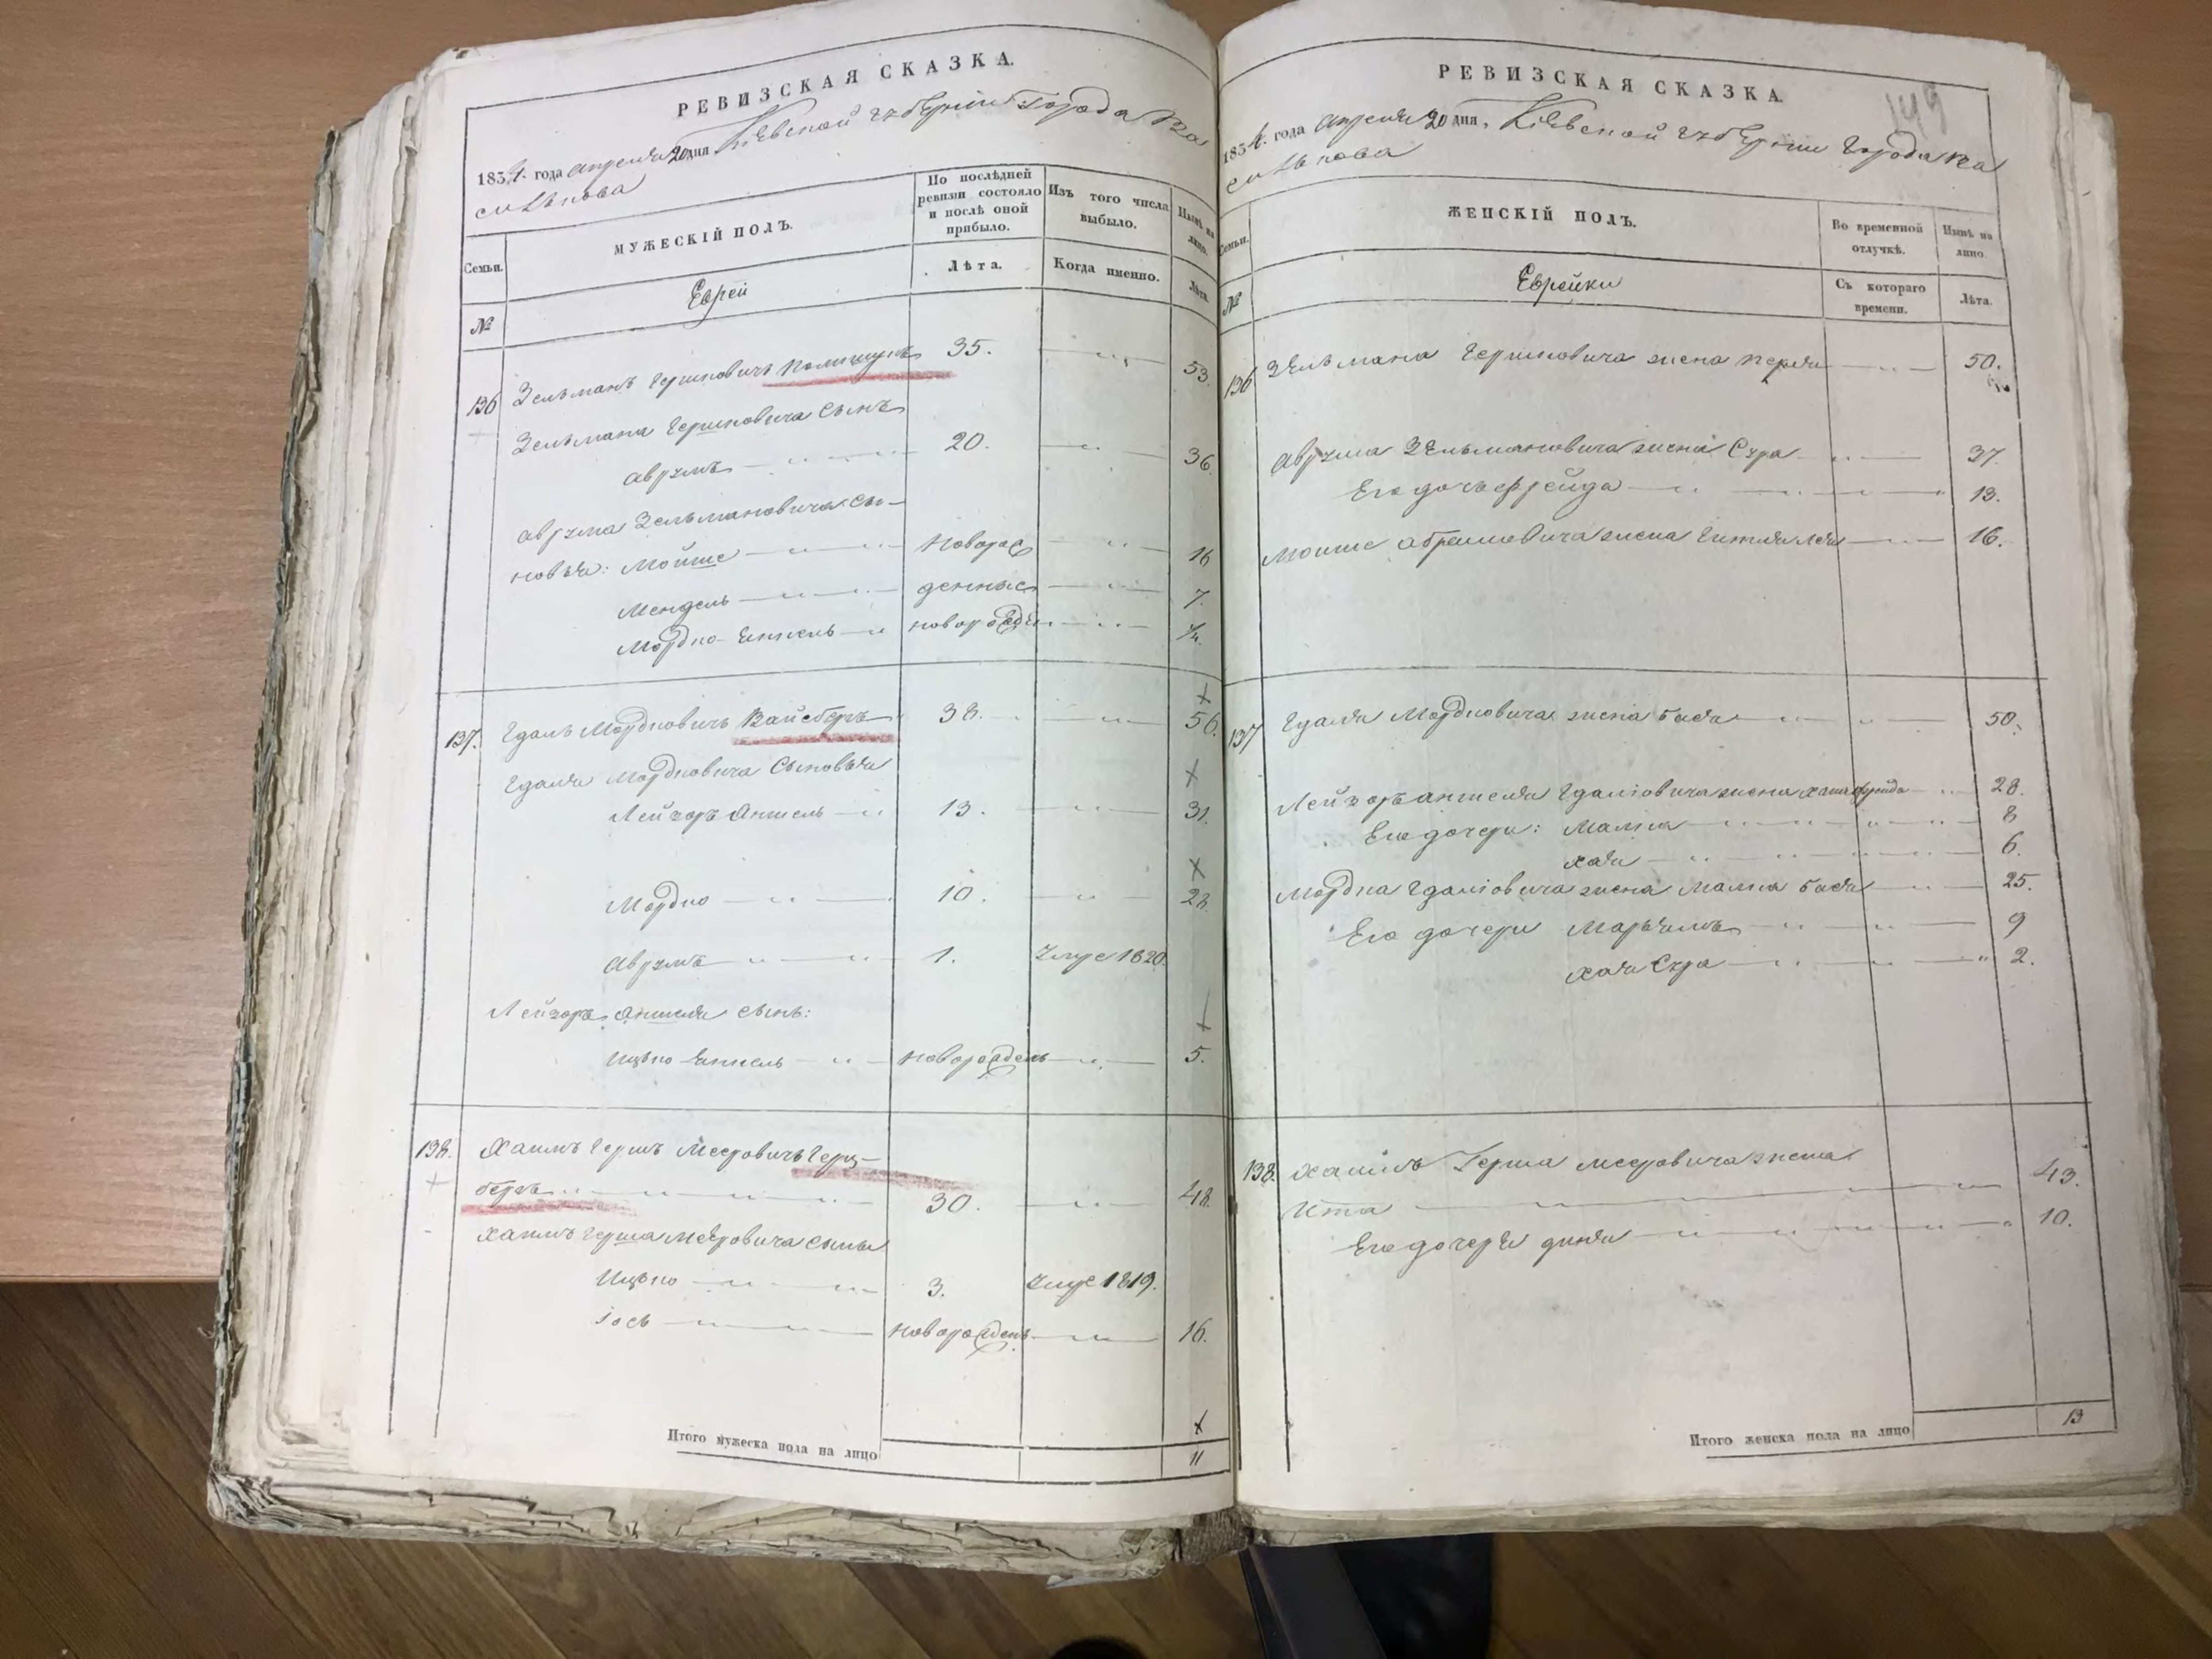 РЕВИЗСКАЯ СКАЗКА.
1834. года апреля 20 дня Кіевской губерніи города Ва
силькова
Семьи.
МУЖЕСКІЙ ПОЛЪ.
По послѣдней ревизіи состояло и послѣ оной прибыло.
Изъ того числа выбыло.
Нынѣ на лицо.
№
Еврей
Лѣта.
Когда именно.
Лѣта.
136 Зельманъ Гершковичъ 35. 53.
Зельмана Гершковича сынъ
Аврумъ 20. 36.
Аврума Зельмановича сы-
новья: Мойше новорож 16
Мендель денные 7.
Мордко Янкель новорожде
137. Гдаль Мордковичъ Вайсберъ 38. 56.
Гдаля Мордковича сыновья
Лейзоръ Аншель 13. 31.
Мордко 10. 28.
Аврумъ 1. умре 1820.
Лейзоръ Аншеля сынъ:
Ицько Янкель новорожденъ 5.
138. Хаимъ Гершъ Мееровичъ Герц-
беръ 30. 48.
Хаимъ Герша Мееровича сыны
Ицько 3. умре 1819.
Іось новорожденъ 16.
Итого мужеска пола на лицо
11
РЕВИЗСКАЯ СКАЗКА.
149
1834. года апреля 20 дня, Кіевской губерніи города Ва
силькова
Семьи.
ЖЕНСКІЙ ПОЛЪ.
Во временной отлучкѣ.
Нынѣ на лицо.
№
Еврейки
Съ котораго времени.
Лѣта.
136 Зельмана Гершковича жена Перля 50.
Аврума Зельмановича жена Сура 37.
Его дочь Фрейда 13.
Моише Абрамовича жена Гитля Лея 16.
137 Гдаля Мордковича жена Бася 50.
Лейзоръ Аншеля Гдаліовича жена Хана Фрейда 28.
Его дочери: Малка 8
Хая 6.
Мордка Гдаліовича жена Малка Бася 25.
Его дочери Марьямъ 9
Хая Сура 2.
138. Хаимъ Герша Мееровича жена
Ита 43.
Его дочеря Диня 10.
Итого женска пола на лицо
13